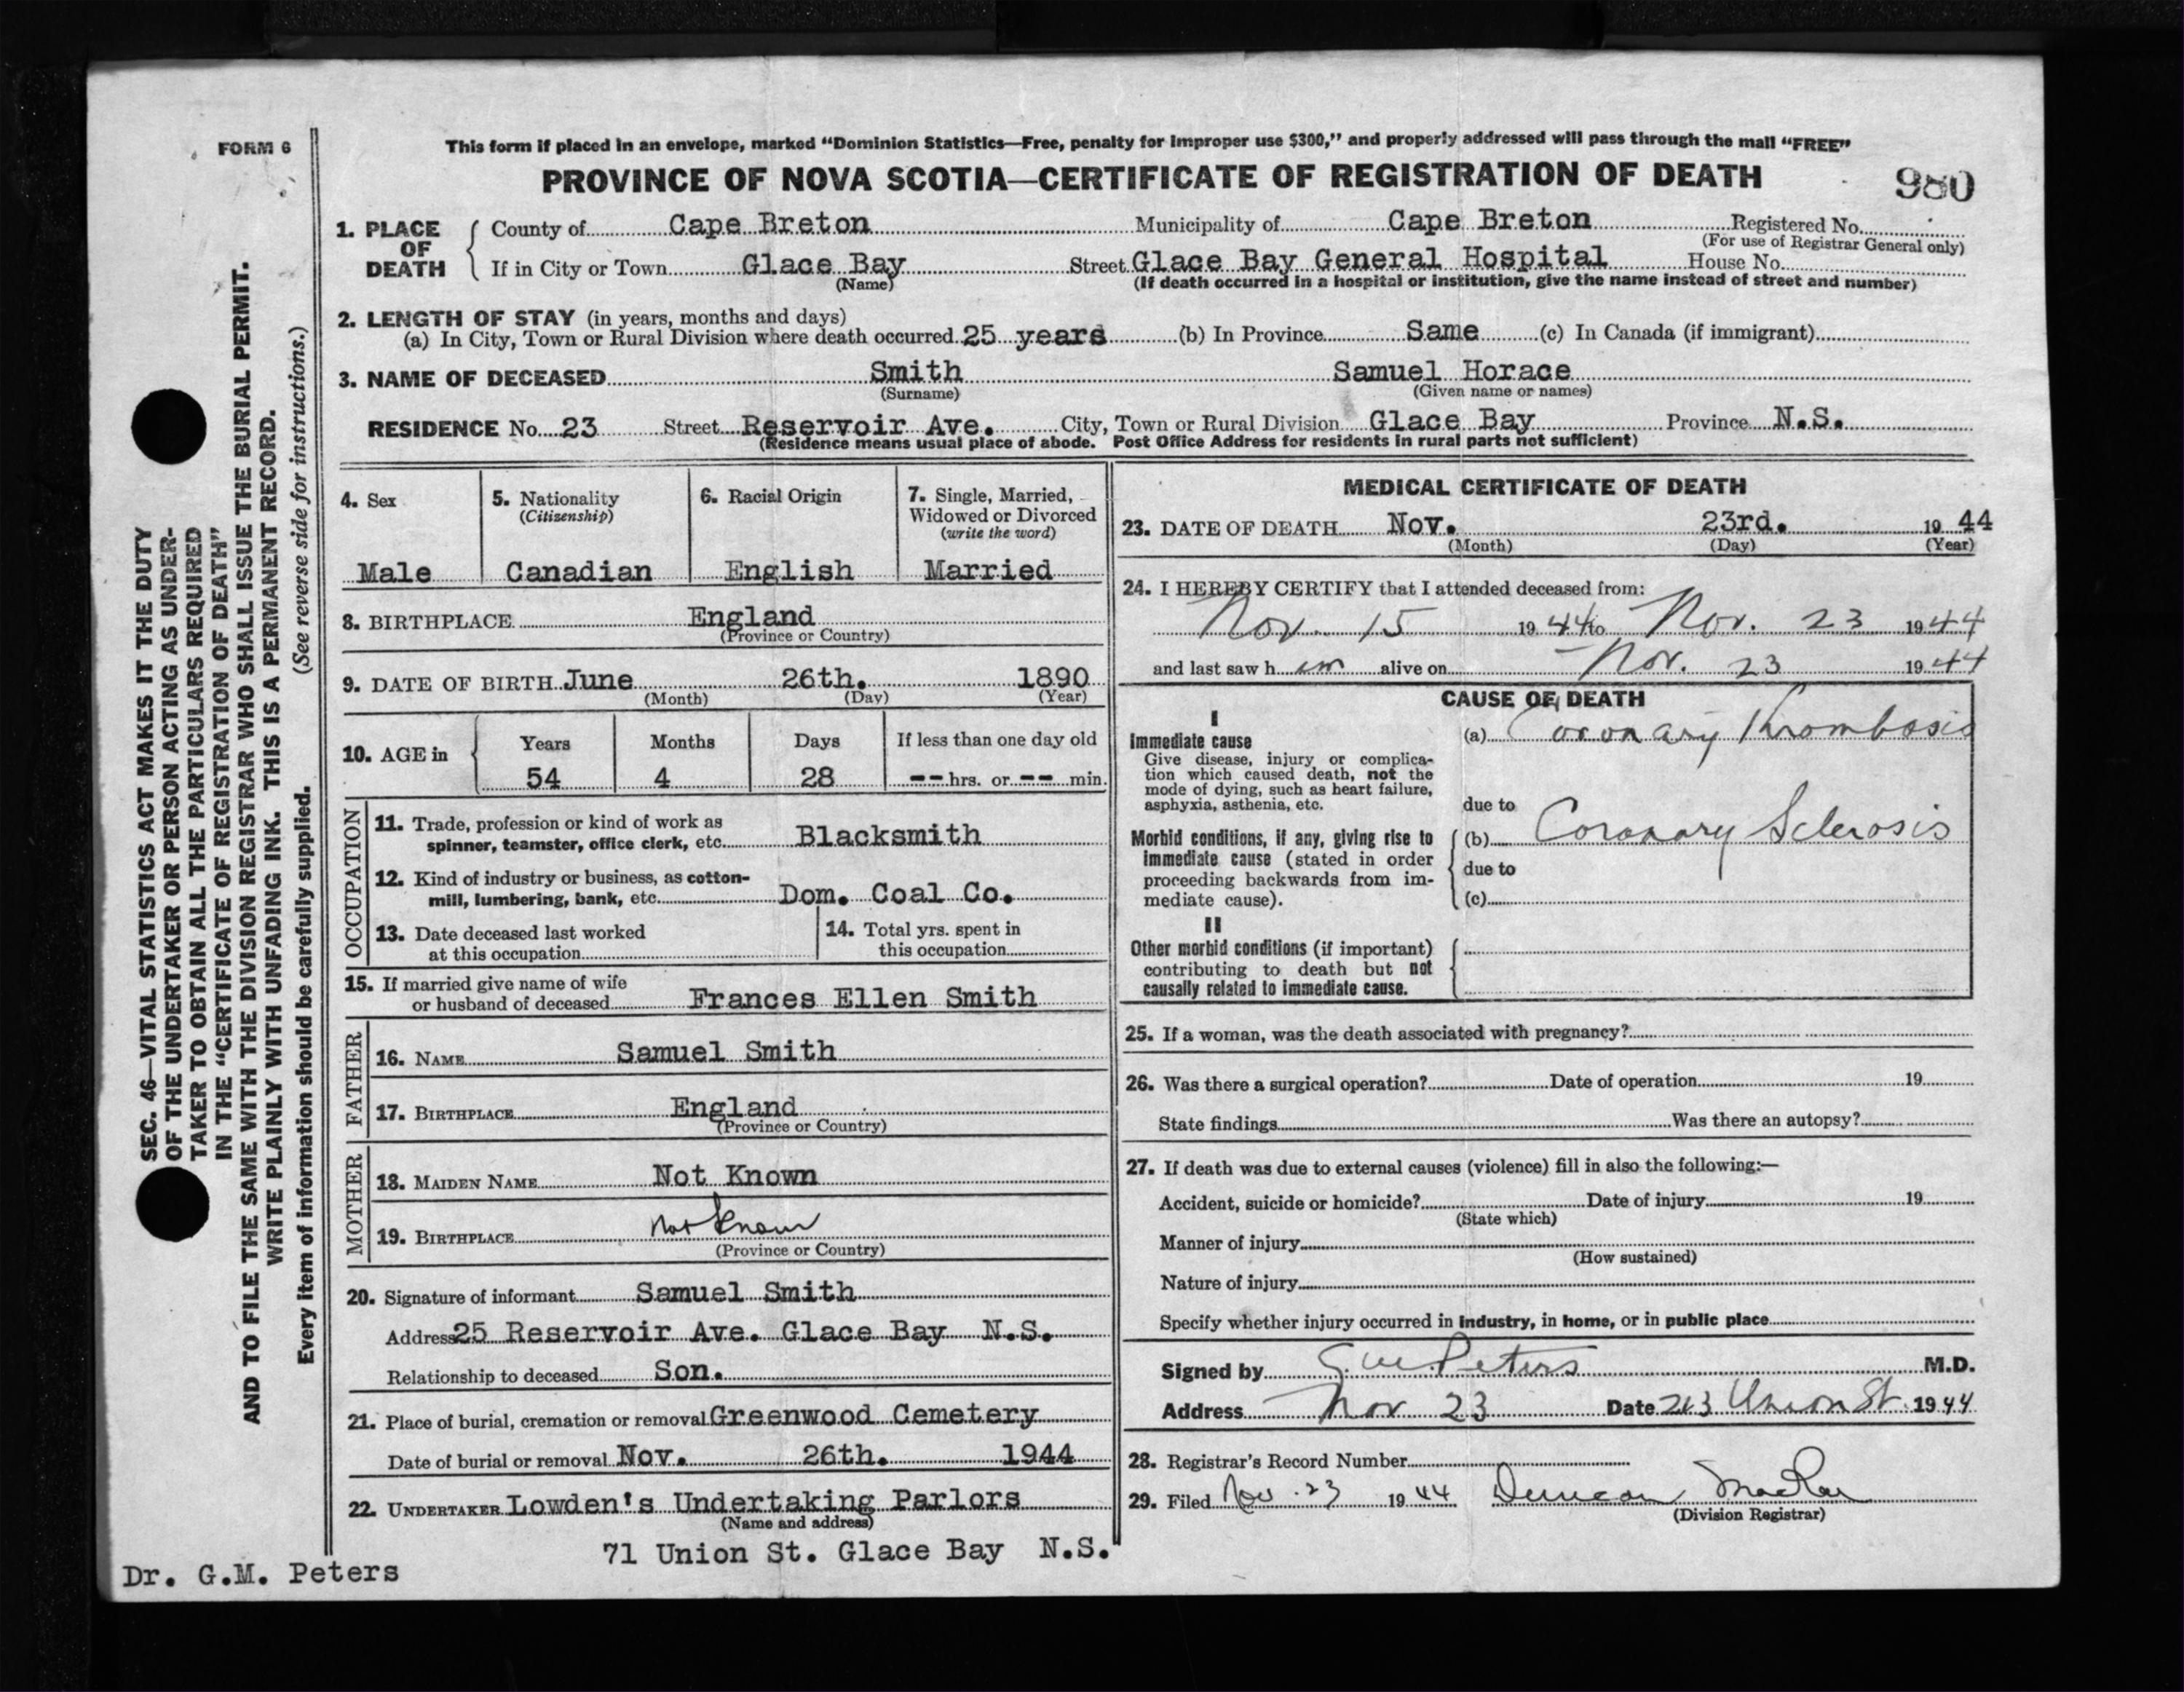 FORM 6
This form if placed in an envelope, marked “Dominion Statistics—Free, penalty for improper use $300,” and properly addressed will pass through the mail “FREE”
PROVINCE OF NOVA SCOTIA—CERTIFICATE OF REGISTRATION OF DEATH
980
1. PLACE OF DEATH
County of Cape Breton Municipality of Cape Breton Registered No.
(For use of Registrar General only)
If in City or Town Glace Bay Street Glace Bay General Hospital House No.
(Name) (If death occurred in a hospital or institution, give the name instead of street and number)
2. LENGTH OF STAY (in years, months and days)
(a) In City, Town or Rural Division where death occurred 25 years (b) In Province Same (c) In Canada (if immigrant)
3. NAME OF DECEASED Smith Samuel Horace
(Surname) (Given name or names)
RESIDENCE No. 23 Street Reservoir Ave. City, Town or Rural Division Glace Bay Province N.S.
(Residence means usual place of abode. Post Office Address for residents in rural parts not sufficient)
4. Sex
Male
5. Nationality
(Citizenship)
Canadian
6. Racial Origin
English
7. Single, Married,
Widowed or Divorced
(write the word)
Married
8. BIRTHPLACE England
(Province or Country)
9. DATE OF BIRTH June 26th. 1890
(Month) (Day) (Year)
10. AGE in
Years Months Days If less than one day old
54 4 28 -- hrs. or -- min.
OCCUPATION
11. Trade, profession or kind of work as
spinner, teamster, office clerk, etc. Blacksmith
12. Kind of industry or business, as cotton-
mill, lumbering, bank, etc. Dom. Coal Co.
13. Date deceased last worked
at this occupation
14. Total yrs. spent in
this occupation
15. If married give name of wife
or husband of deceased Frances Ellen Smith
FATHER
16. NAME Samuel Smith
17. BIRTHPLACE England
(Province or Country)
MOTHER
18. MAIDEN NAME Not Known
19. BIRTHPLACE Not Known
(Province or Country)
20. Signature of informant Samuel Smith
Address 25 Reservoir Ave. Glace Bay N.S.
Relationship to deceased Son.
21. Place of burial, cremation or removal Greenwood Cemetery
Date of burial or removal Nov. 26th. 1944
22. UNDERTAKER Lowden's Undertaking Parlors
(Name and address)
71 Union St. Glace Bay N.S.
Dr. G.M. Peters
MEDICAL CERTIFICATE OF DEATH
23. DATE OF DEATH Nov. 23rd. 19 44
(Month) (Day) (Year)
24. I HEREBY CERTIFY that I attended deceased from:
Nov. 15 1944 to Nov. 23 1944
and last saw h im alive on Nov. 23 1944
CAUSE OF DEATH
I
Immediate cause
Give disease, injury or complica-
tion which caused death, not the
mode of dying, such as heart failure,
asphyxia, asthenia, etc.
(a) Coronary Thrombosis
due to
Morbid conditions, if any, giving rise to
immediate cause (stated in order
proceeding backwards from im-
mediate cause).
(b) Coronary Sclerosis
due to
(c)
II
Other morbid conditions (if important)
contributing to death but not
causally related to immediate cause.
25. If a woman, was the death associated with pregnancy?
26. Was there a surgical operation? Date of operation 19
State findings Was there an autopsy?
27. If death was due to external causes (violence) fill in also the following:—
Accident, suicide or homicide? Date of injury 19
(State which)
Manner of injury
(How sustained)
Nature of injury
Specify whether injury occurred in industry, in home, or in public place
Signed by G. M. Peters M.D.
Address Nov 23 Date 213 Union St. 1944
28. Registrar's Record Number
29. Filed Nov. 23 1944 Duncan MacRae
(Division Registrar)
SEC. 46—VITAL STATISTICS ACT MAKES IT THE DUTY
OF THE UNDERTAKER OR PERSON ACTING AS UNDER-
TAKER TO OBTAIN ALL THE PARTICULARS REQUIRED
IN THE “CERTIFICATE OF REGISTRATION OF DEATH”
AND TO FILE THE SAME WITH THE DIVISION REGISTRAR WHO SHALL ISSUE THE BURIAL PERMIT.
WRITE PLAINLY WITH UNFADING INK. THIS IS A PERMANENT RECORD.
Every item of information should be carefully supplied. (See reverse side for instructions.)